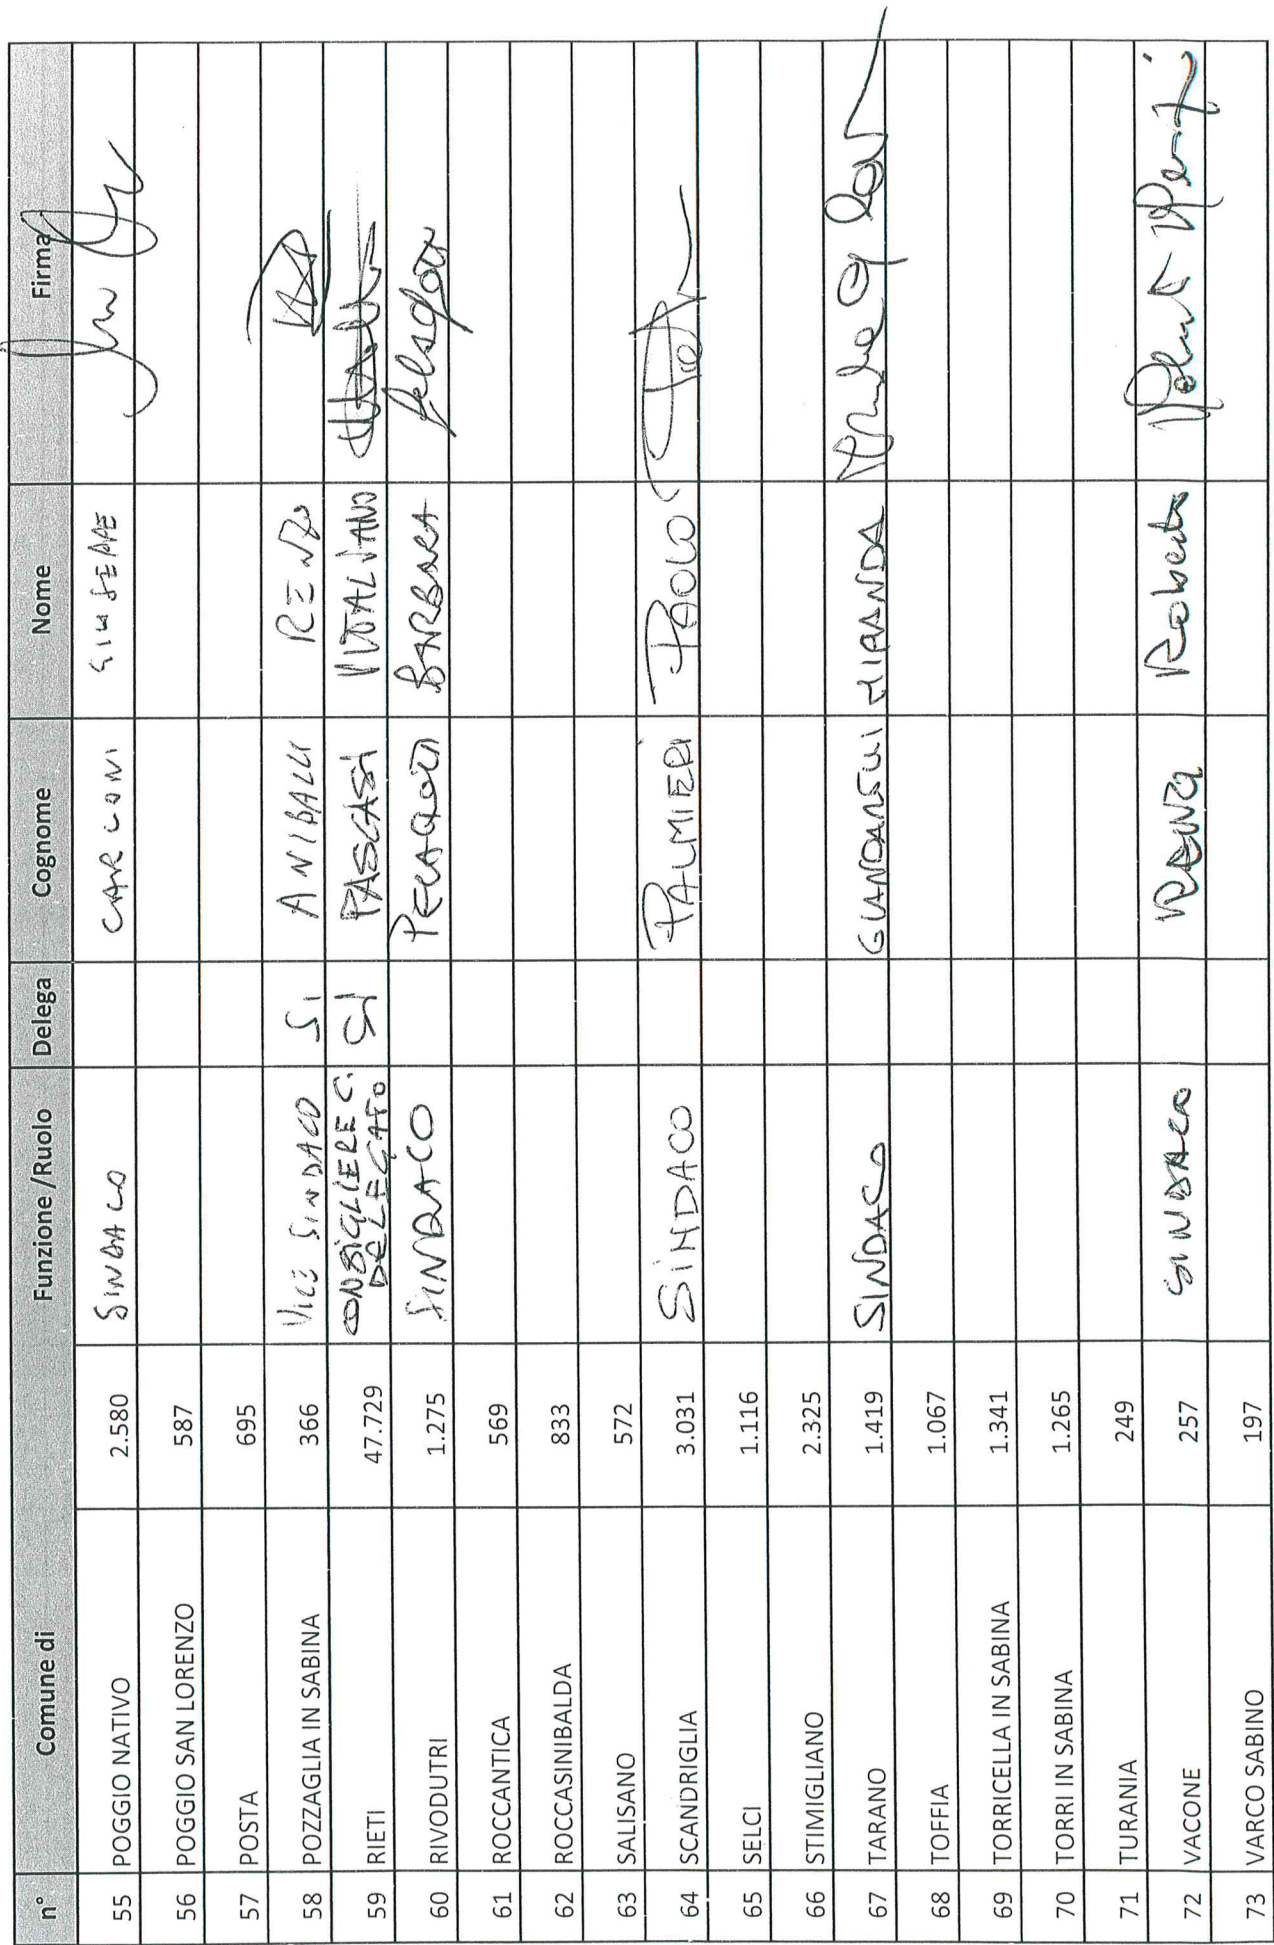 n° Comune di Funzione /Ruolo Delega Cognome Nome Firma
55 POGGIO NATIVO 2.580 SINDACO CARCONI GIUSEPPE
56 POGGIO SAN LORENZO 587
57 POSTA 695
58 POZZAGLIA IN SABINA 366 VICE SINDACO SI ANIBALLI RENZO
59 RIETI 47.729 CONSIGLIERE C. DELEGATO SI PASCASI VITALIANO
60 RIVODUTRI 1.275 SINDACO PELAGOTTI BARBARA
61 ROCCANTICA 569
62 ROCCASINIBALDA 833
63 SALISANO 572
64 SCANDRIGLIA 3.031 SINDACO PALMIERI PAOLO
65 SELCI 1.116
66 STIMIGLIANO 2.325
67 TARANO 1.419 SINDACO
68 TOFFIA 1.067
69 TORRICELLA IN SABINA 1.341
70 TORRI IN SABINA 1.265
71 TURANIA 249
72 VACONE 257 SINDACO RENZI Roberto
73 VARCO SABINO 197